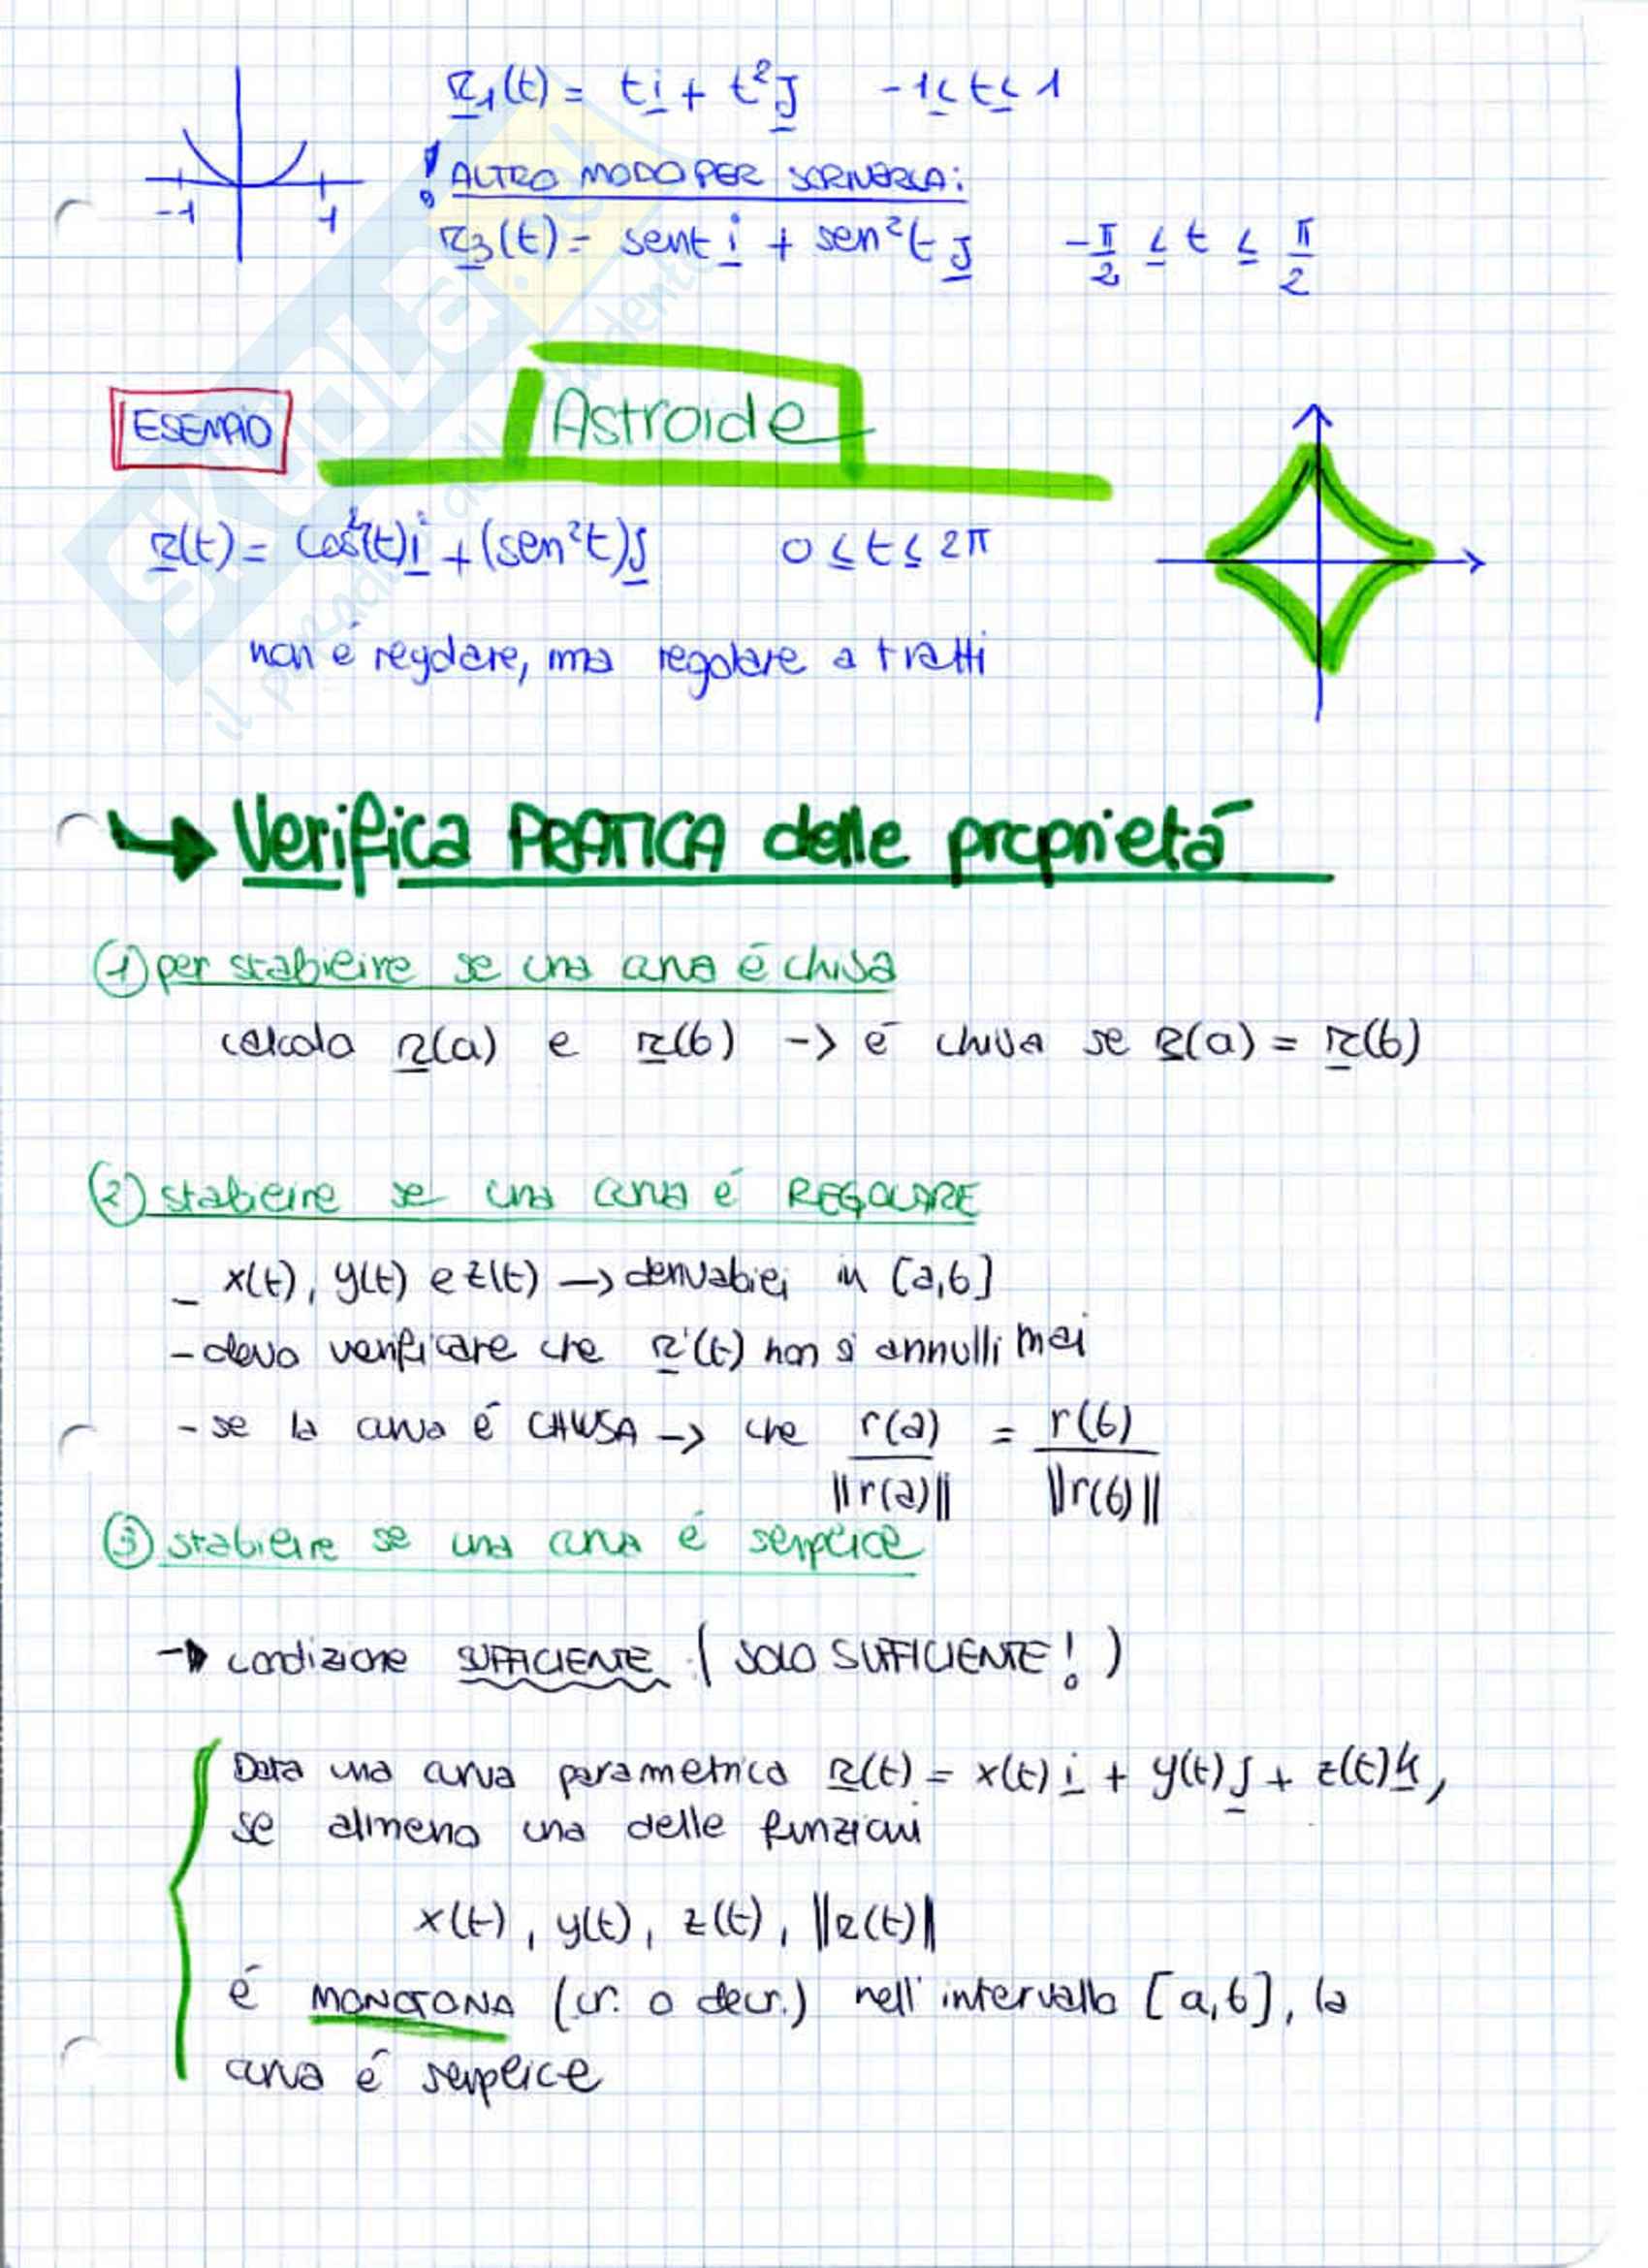 r₁(t) = t i + t² j   -1 ≤ t ≤ 1
! ALTRO MODO PER SCRIVERLA:
-1   1
r₃(t) = sent i + sen²t j   -π/2 ≤ t ≤ π/2
SKUOLA.NU
il paradiso dello studente
ESEMPIO
Astroide
r(t) = cos²(t) i + (sen²t) j   0 ≤ t ≤ 2π
non é regolare, ma regolare a tratti
→ Verifica PRATICA delle proprietá
① per stabilire se una curva é chiusa
calcola r(a) e r(b) -> é chiusa se r(a) = r(b)
② stabilire se una curva é REGOLARE
- x(t), y(t) e z(t) —> derivabili in [a,b]
- devo verificare che r'(t) non si annulli mai
- se la curva é CHIUSA —> che r(a)/||r(a)|| = r(b)/||r(b)||
③ stabilire se una curva é semplice
→ condizione SUFFICIENTE (SOLO SUFFICIENTE!)
Data una curva parametrica r(t) = x(t) i + y(t) j + z(t) k,
se almeno una delle funzioni
x(t), y(t), z(t), ||r(t)||
é MONOTONA (cr. o decr.) nell'intervallo [a,b], la
curva é semplice